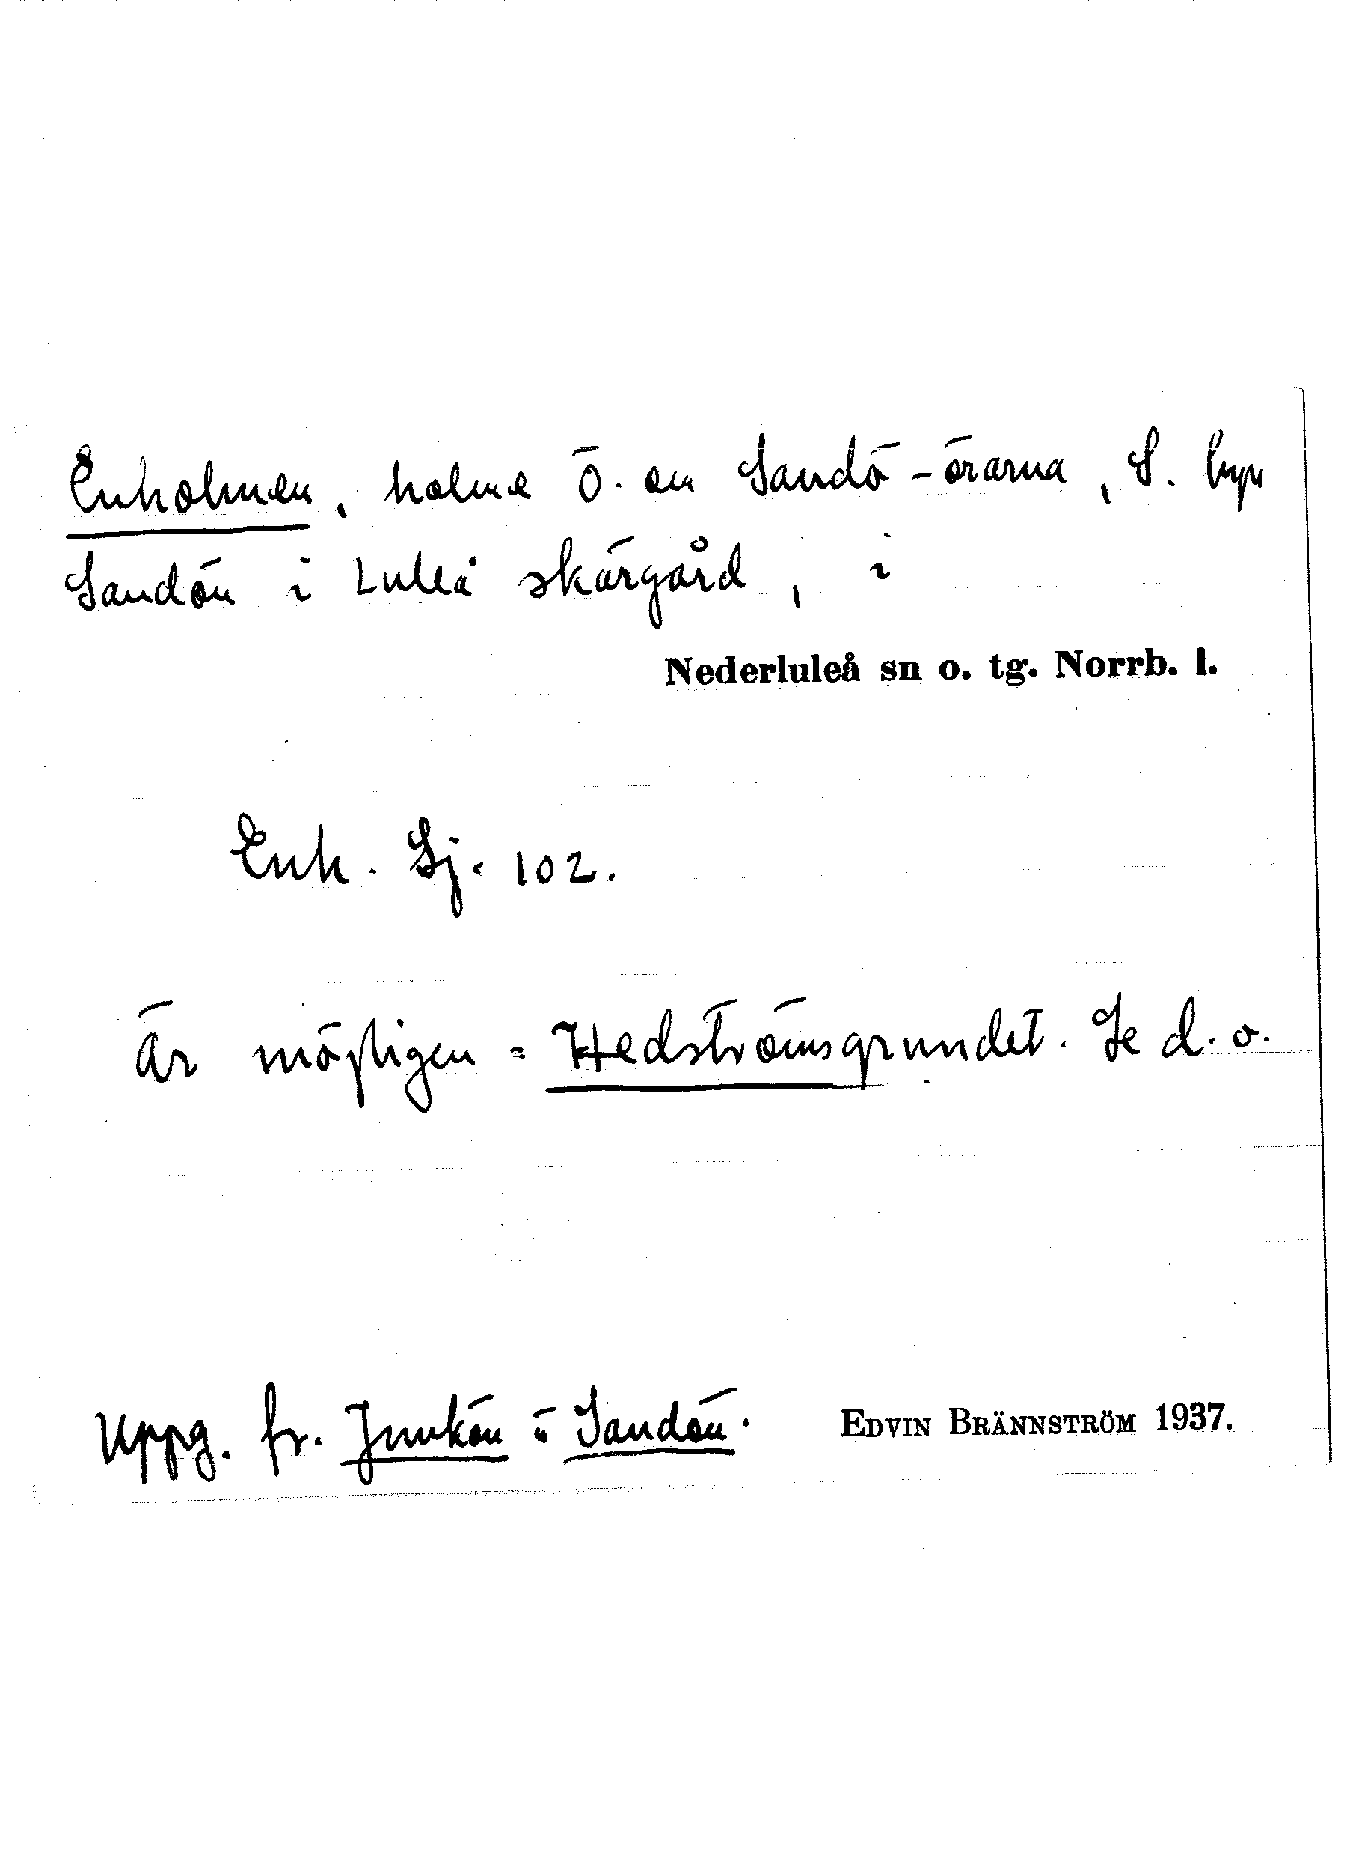 Enholmen, holme Ö. om Sandö-örarna, S. byn
Sandön i Luleå skärgård, i
Nederluleå sn o. tg. Norrb. l.
Enh. Sj. 102.
Är möjligen = Hedströmsgrundet. Se d. o.
Uppg. fr. Junkön o Sandön.
EDVIN BRÄNNSTRÖM 1937.